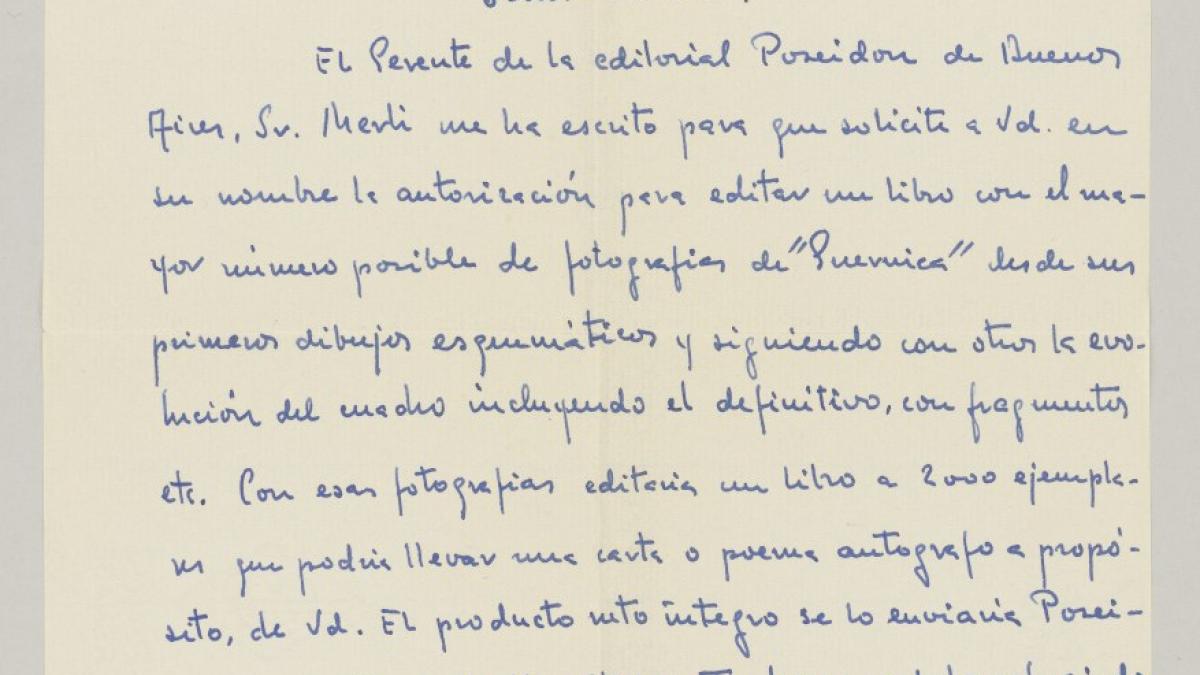 El Gerente de la editorial Poseidon de Buenos
Aires, Sr. Merli me ha escrito para que solicite a Vd. en
su nombre la autorización para editar un libro con el ma-
yor número posible de fotografias de "Guernica" desde sus
primeros dibujos esquemáticos y siguiendo con otros la evo-
lución del cuadro incluyendo el definitivo, con fragmentos
etc. Con esas fotografias editaria un libro a 2000 ejempla-
res que podria llevar una carta o poema autografo a propó-
sito, de Vd. El producto neto integro se lo enviaria Posei-